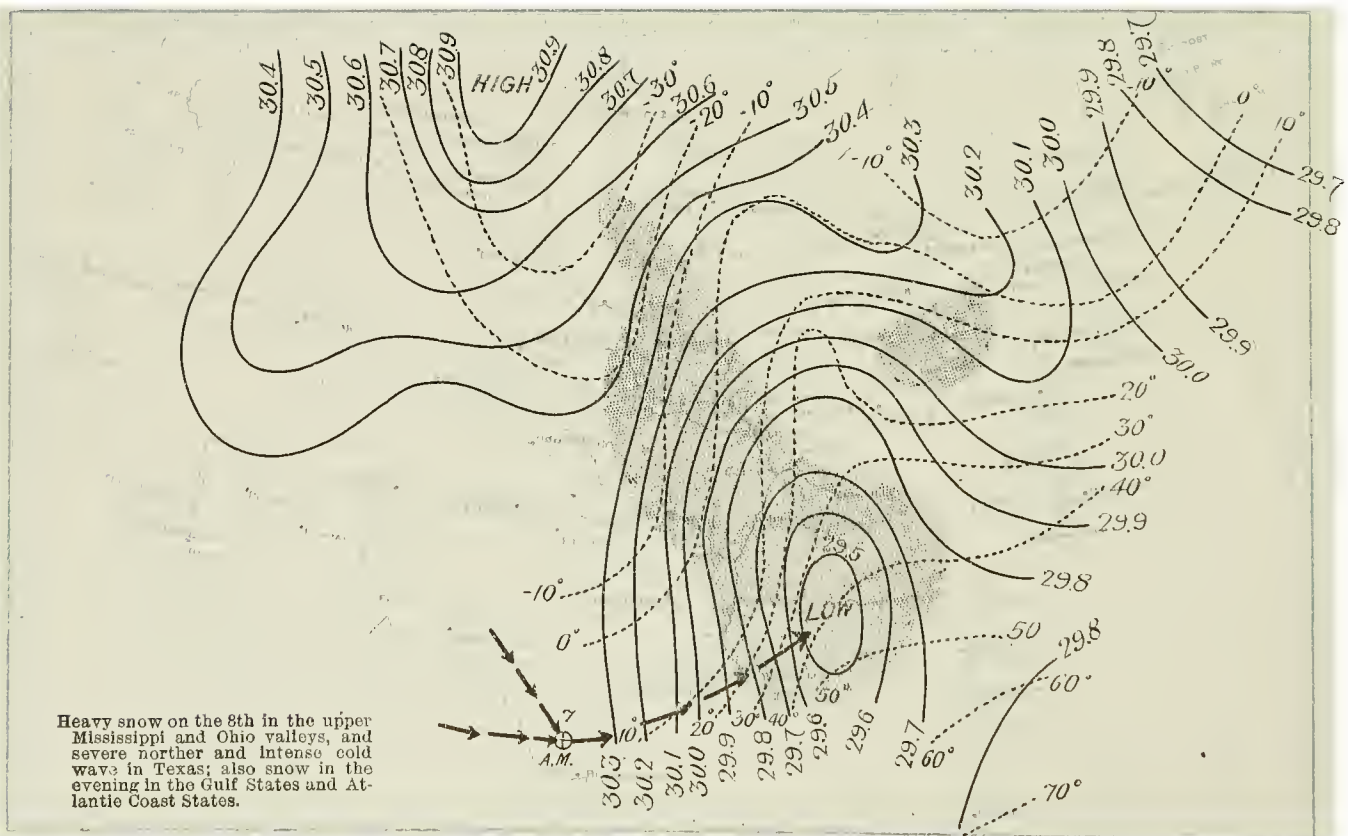 30.4
30.5
30.6
30.7
30.8
30.9
HIGH
30.9
30.8
30.7
-30°
30.6
-20°
-10°
30.5
30.4
-10°
30.3
30.2
30.1
30.0
29.9
29.8
29.7
0°
10°
29.7
29.8
29.9
30.0
20°
30°
30.0
40°
29.9
29.8
29.5
LOW
50
29.8
60°
60°
70°
-10°
0°
7
A.M.
10°
20°
30°
40°
50°
30.3
30.2
30.1
30.0
29.9
29.8
29.7
29.6
29.6
29.7
Heavy snow on the 8th in the upper
Mississippi and Ohio valleys, and
severe norther and intense cold
wave in Texas; also snow in the
evening in the Gulf States and At-
lantic Coast States.